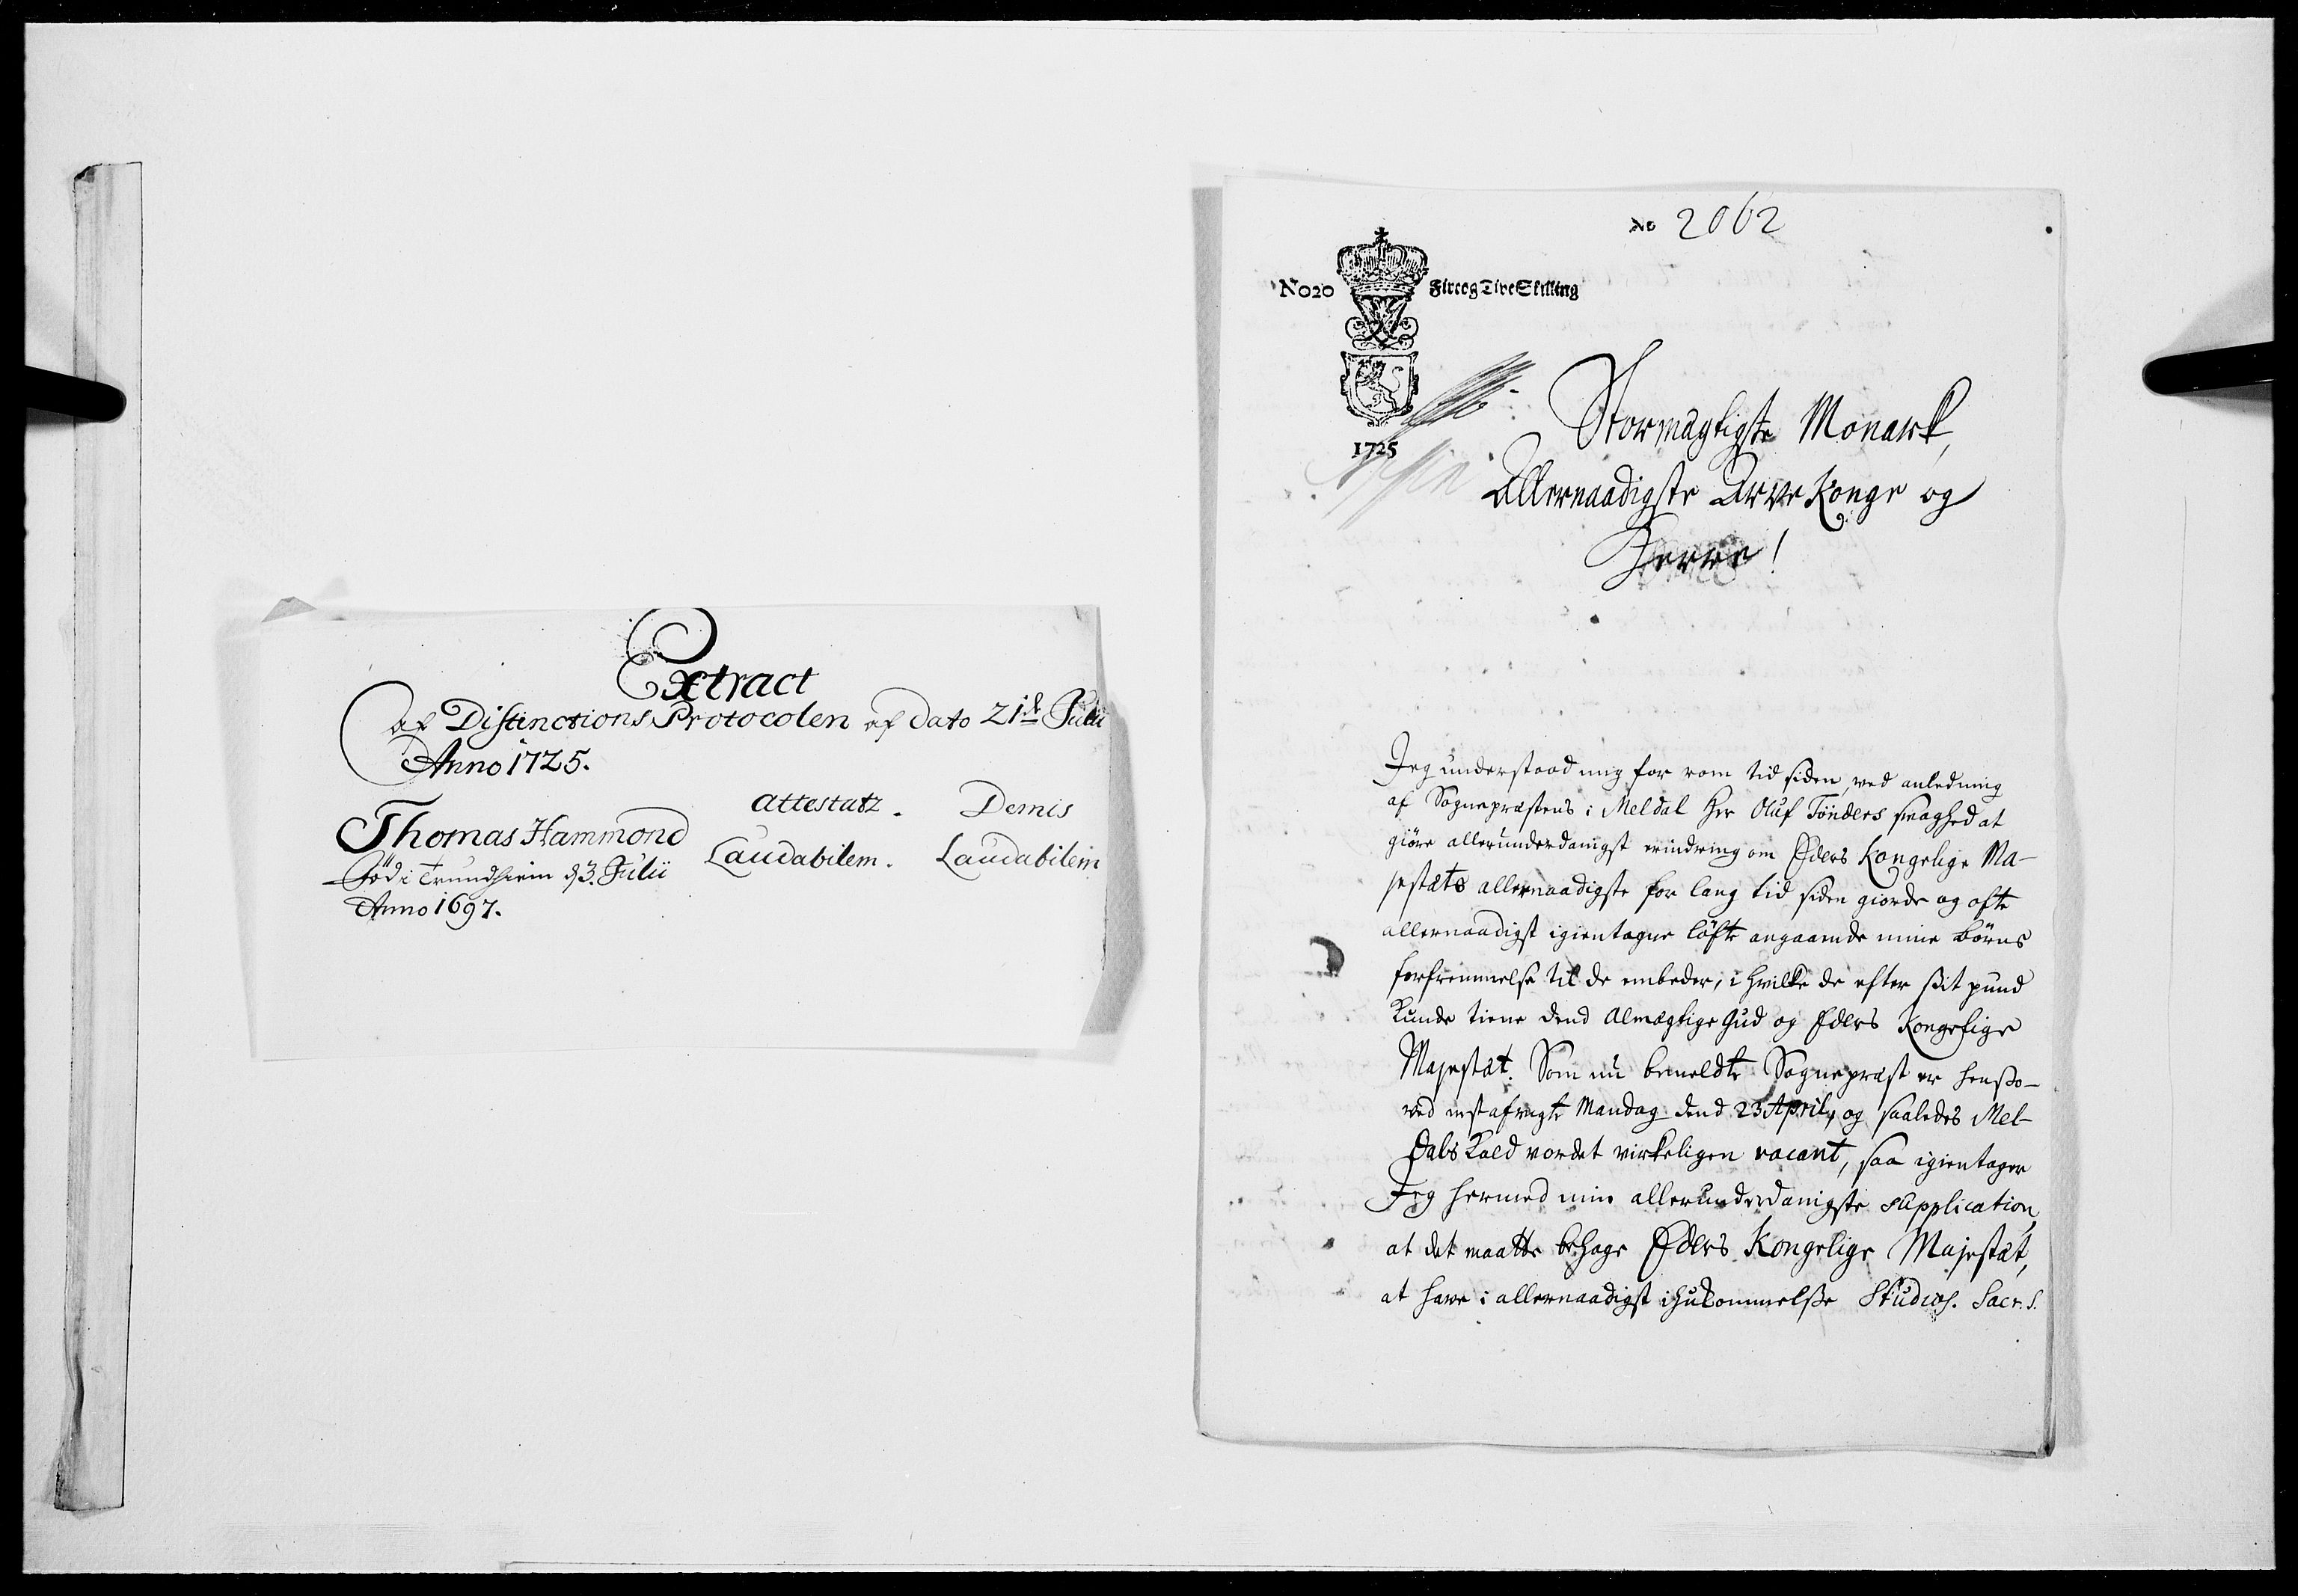 Extract
af Distinctions Protocolen af dato 21de Julii
Anno 1725.
Attestatz. Demis
Thomas Hammond Laudabilem. Laudabilem
Föd i Trundhiem d 3. Julii
Anno 1697.
No 2062
No 20 Fire og Tive Skilling
1725
Stormægtigste Monark,
Allernaadigste Arve Konge og
Herre!
Jeg understood mig for rom tid siden, ved anledning
af Sognepræstens i Meldal Her Oluf Tönders svaghed at
giöre allerunderdanigst erindring om Eders Kongelige Ma-
jestæts allernaadigste for lang tid siden giorde og ofte
allernaadigst igientagne löfte angaaende mine börns
forfremmelse til de embeder, i hvilke de efter sit pund
kunde tiene dend Almægtige Gud og Eders Kongelige
Majestæt. Som nu bemeldte Sognepræst er henso-
ved nestafvigte Mandag dend 23 April, og saaledes Mel-
dals Kald vordet virkeligen vacant, saa igientager
Jeg hermed min allerunderdanigste supplication,
at det maatte behage Eders Kongelige Majestæt,
at have i allernaadigst ihukommelse Studios. Sacr. S.